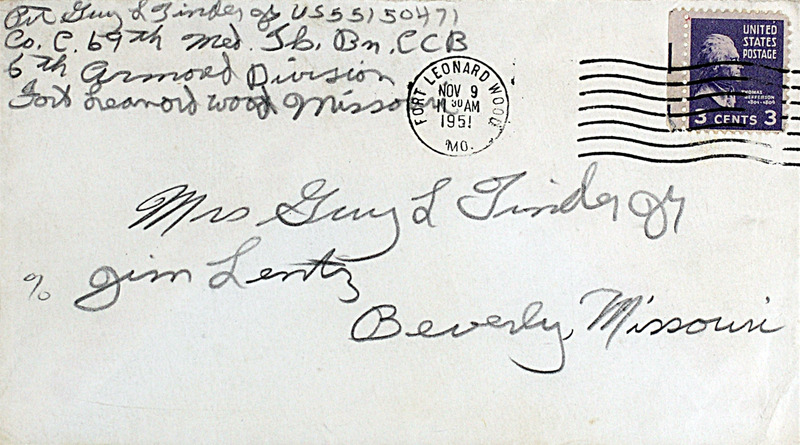 Pvt Guy L Tinder Jr US55150471
Co. C. 69th Med. Tk. Bn, CCB
6th Armored Division
Fort Leanord Wood Missouri
FORT LEONARD WOOD
NOV 9
11 30 AM
1951
MO.
UNITED
STATES
POSTAGE
THOMAS
JEFFERSON
1801-1809
3 CENTS 3
Mrs Guy L Tinder Jr
% Jim Lentz
Beverly, Missouri